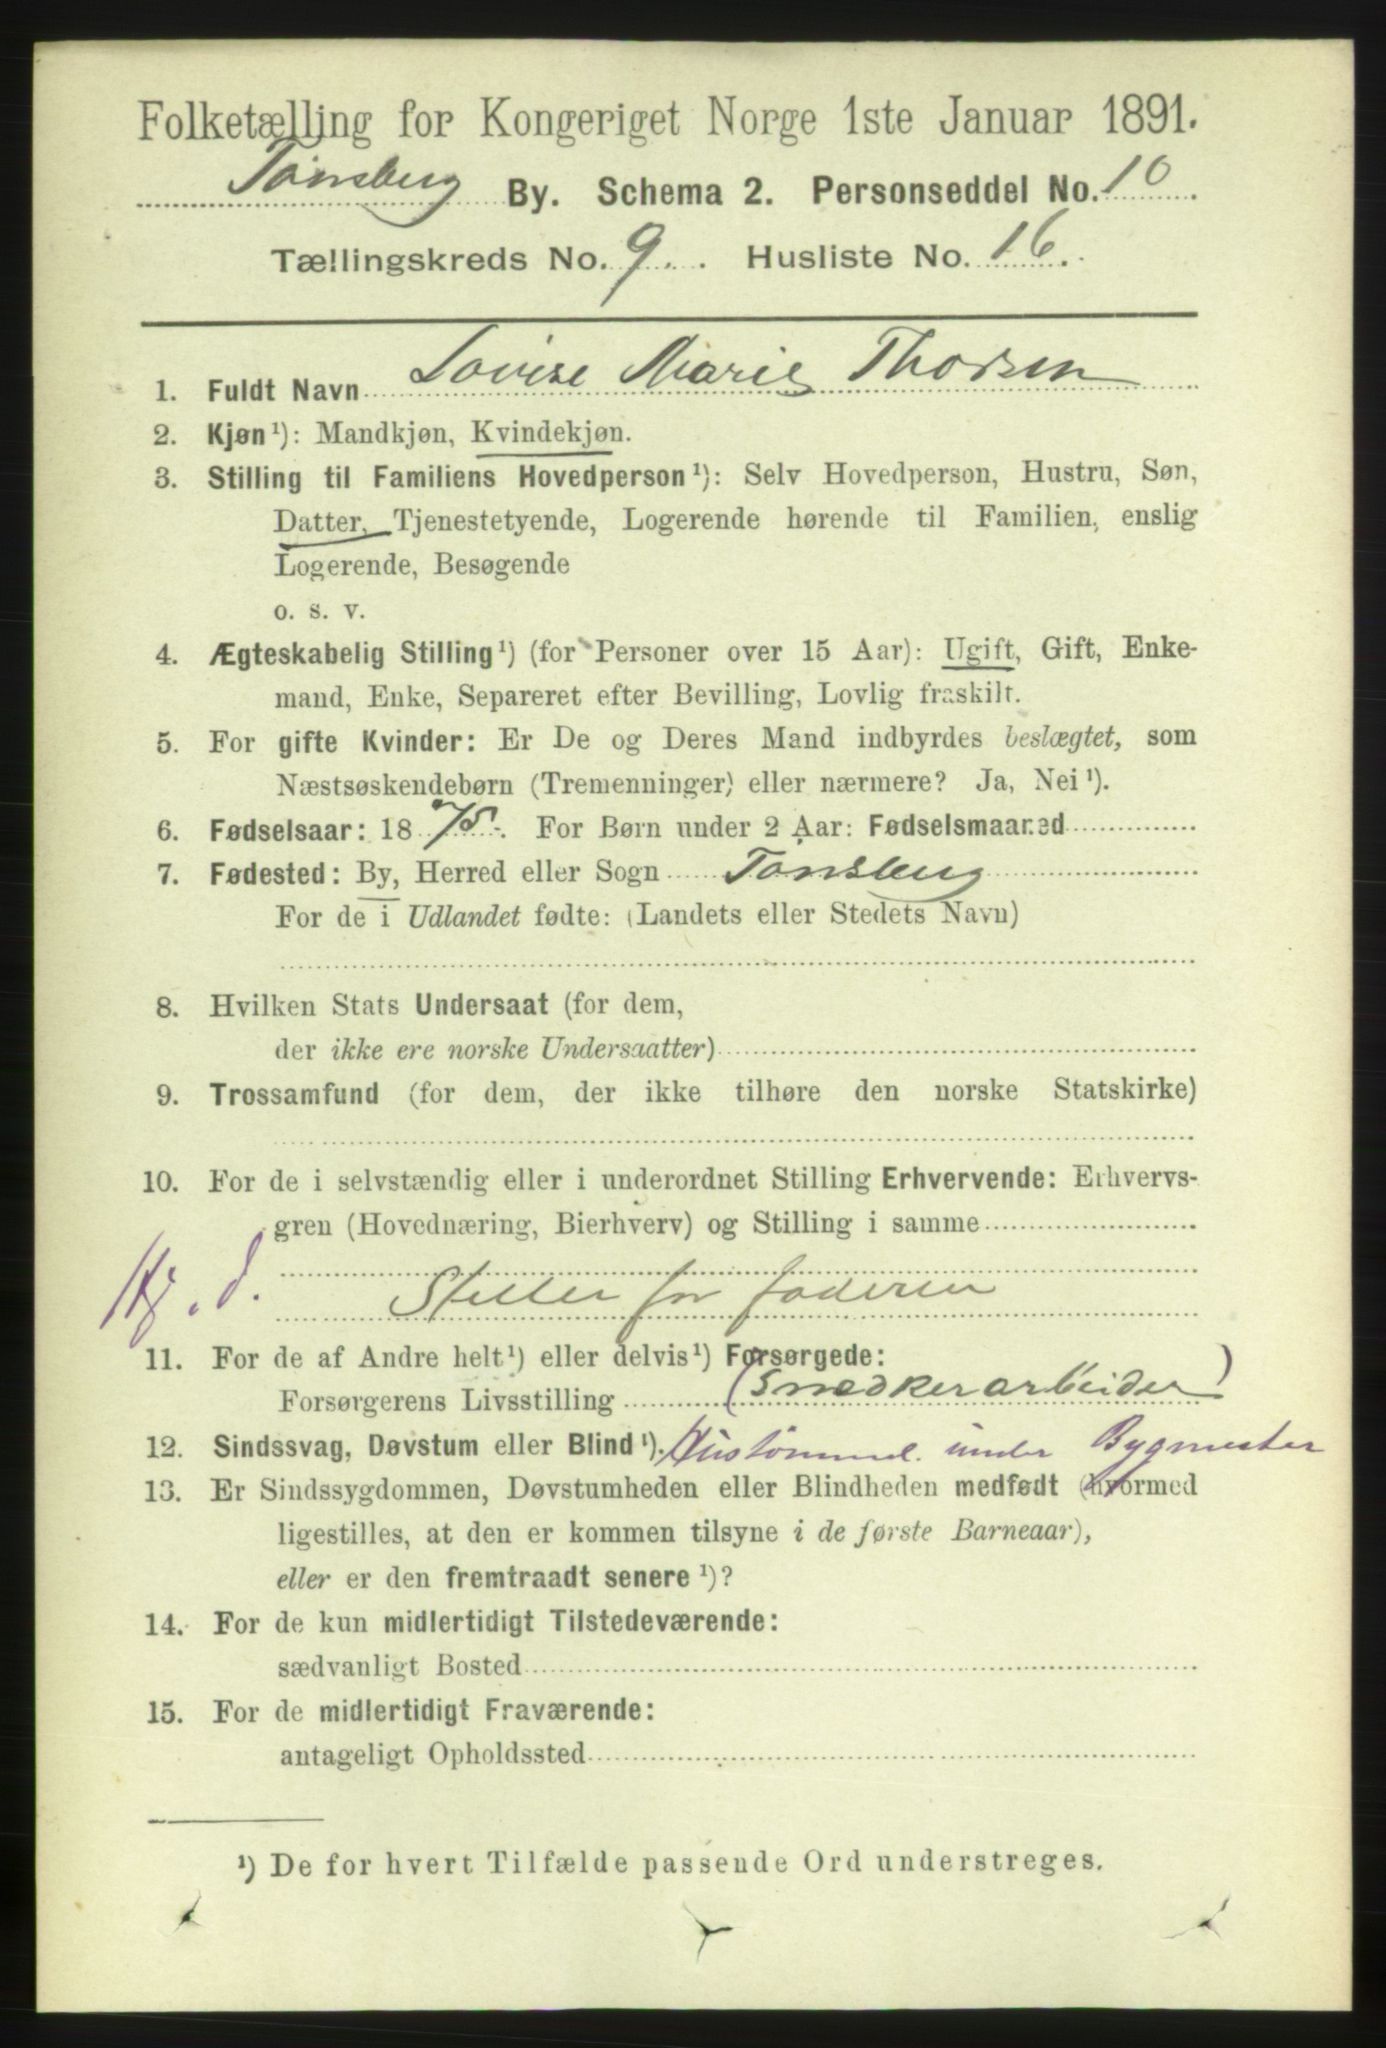 Folketælling for Kongeriget Norge 1ste Januar 1891.
Tønsberg By. Schema 2. Personseddel No. 10
Tællingskreds No. 9. Husliste No. 16.
1. Fuldt Navn Lovise Marie Thorsen
2. Kjøn ¹): Mandkjøn, Kvindekjøn.
3. Stilling til Familiens Hovedperson ¹): Selv Hovedperson, Hustru, Søn,
Datter, Tjenestetyende, Logerende hørende til Familien, enslig
Logerende, Besøgende
o. s. v.
4. Ægteskabelig Stilling ¹) (for Personer over 15 Aar): Ugift, Gift, Enke-
mand, Enke, Separeret efter Bevilling, Lovlig fraskilt.
5. For gifte Kvinder: Er De og Deres Mand indbyrdes beslægtet, som
Næstsøskendebørn (Tremenninger) eller nærmere? Ja, Nei ¹).
6. Fødselsaar: 1875. For Børn under 2 Aar: Fødselsmaaned
7. Fødested: By, Herred eller Sogn Tønsberg
For de i Udlandet fødte: (Landets eller Stedets Navn)
8. Hvilken Stats Undersaat (for dem,
der ikke ere norske Undersaatter)
9. Trossamfund (for dem, der ikke tilhøre den norske Statskirke)
10. For de i selvstændig eller i underordnet Stilling Erhvervende: Erhvervs-
gren (Hovednæring, Bierhverv) og Stilling i samme
Hj. d. Steller for faderen
11. For de af Andre helt ¹) eller delvis ¹) Forsørgede:
Forsørgerens Livsstilling (Snedkerarbeider)
12. Sindssvag, Døvstum eller Blind ¹). Hustømmer. under Bygmester
13. Er Sindssygdommen, Døvstumheden eller Blindheden medfødt (hvormed
ligestilles, at den er kommen tilsyne i de første Barneaar),
eller er den fremtraadt senere ¹)?
14. For de kun midlertidigt Tilstedeværende:
sædvanligt Bosted
15. For de midlertidigt Fraværende:
antageligt Opholdssted
¹) De for hvert Tilfælde passende Ord understreges.